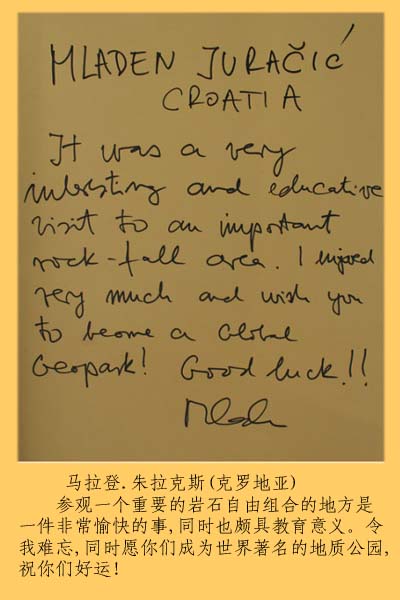 MLADEN JURAČIĆ
CROATIA
It was a very
interesting and educative
visit to an important
rock-fall area. I injoyed
very much and wish you
to become a Global
Geopark! Good luck!!
Mladen
马拉登.朱拉克斯(克罗地亚)
参观一个重要的岩石自由组合的地方是
一件非常愉快的事,同时也颇具教育意义。令
我难忘,同时愿你们成为世界著名的地质公园,
祝你们好运!